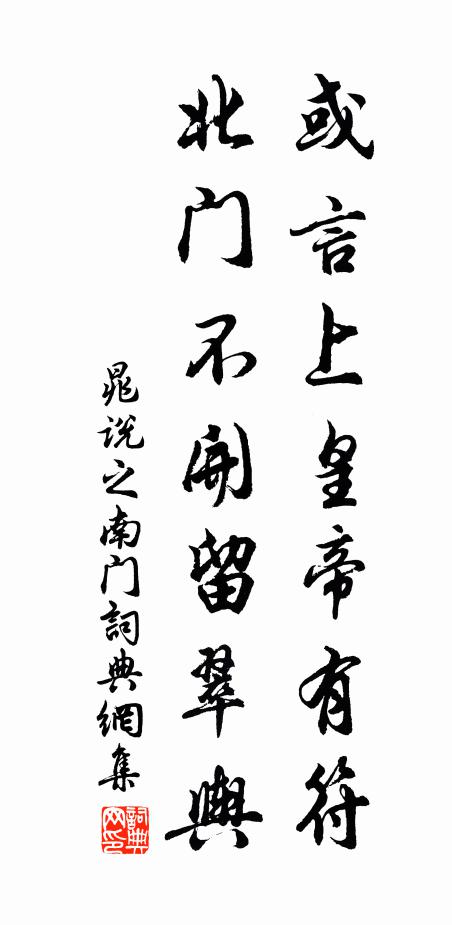 或言上皇帝有符
北门不開留翠輿
晁说之南门詞典網集
詞典网印